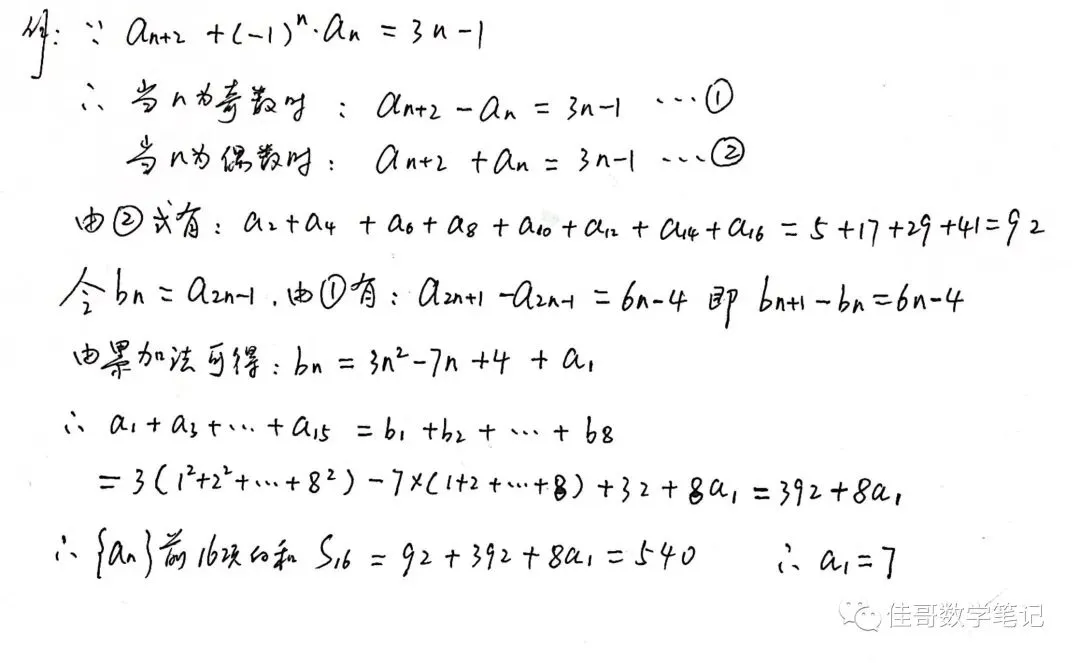 解：∵ aₙ₊₂ + (-1)ⁿ·aₙ = 3n-1
∴ 当n为奇数时：aₙ₊₂ - aₙ = 3n-1 …①
当n为偶数时：aₙ₊₂ + aₙ = 3n-1 …②
由②式有：a₂+a₄ + a₆+a₈+a₁₀+a₁₂+a₁₄+a₁₆ = 5+17+29+41=92
令bₙ = a₂ₙ₋₁，由①有：a₂ₙ₊₁ - a₂ₙ₋₁ = 6n-4 即 bₙ₊₁ - bₙ = 6n-4
由累加法可得：bₙ = 3n²-7n+4 + a₁
∴ a₁+a₃+…+a₁₅ = b₁+b₂+…+b₈
= 3(1²+2²+…+8²) - 7×(1+2+…+8) + 32 + 8a₁ = 392+8a₁
∴ {aₙ}前16项的和 S₁₆ = 92+392+8a₁ = 540 ∴ a₁=7
佳哥数学笔记